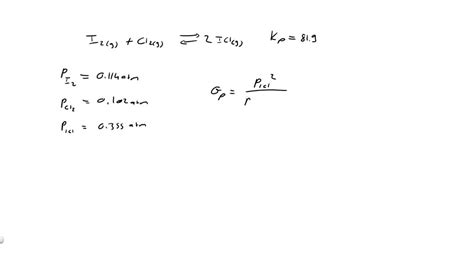 I₂(g) + Cl₂(g) ⇌ 2 ICl(g) Kp = 81.9
P I₂ = 0.114 atm
P Cl₂ = 0.102 atm
P ICl = 0.355 atm
Qp = P ICl² / P